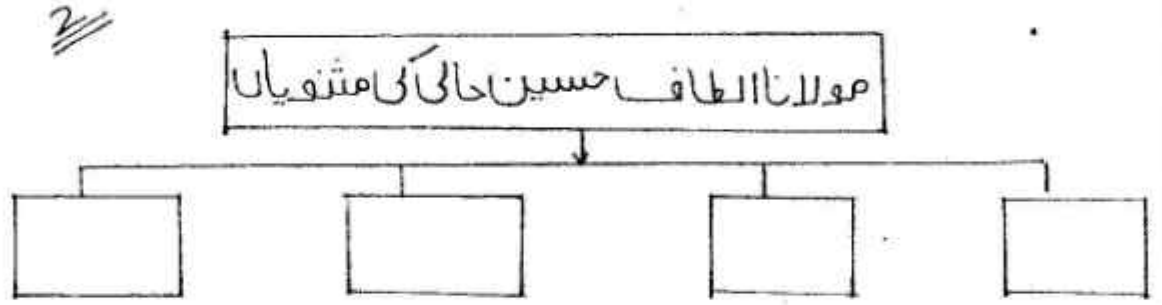 2
مولانا الطاف حسین حالی کی مثنویاں